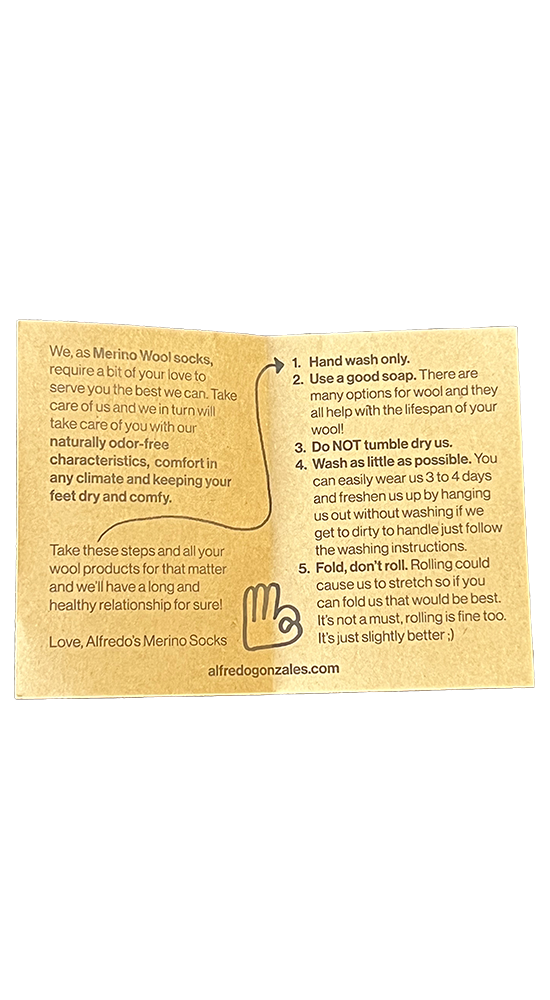 We, as Merino Wool socks,
require a bit of your love to
serve you the best we can. Take
care of us and we in turn will
take care of you with our
naturally odor-free
characteristics, comfort in
any climate and keeping your
feet dry and comfy.
Take these steps and all your
wool products for that matter
and we'll have a long and
healthy relationship for sure!
Love, Alfredo's Merino Socks
1. Hand wash only.
2. Use a good soap. There are
many options for wool and they
all help with the lifespan of your
wool!
3. Do NOT tumble dry us.
4. Wash as little as possible. You
can easily wear us 3 to 4 days
and freshen us up by hanging
us out without washing if we
get to dirty to handle just follow
the washing instructions.
5. Fold, don't roll. Rolling could
cause us to stretch so if you
can fold us that would be best.
It's not a must, rolling is fine too.
It's just slightly better ;)
alfredogonzales.com